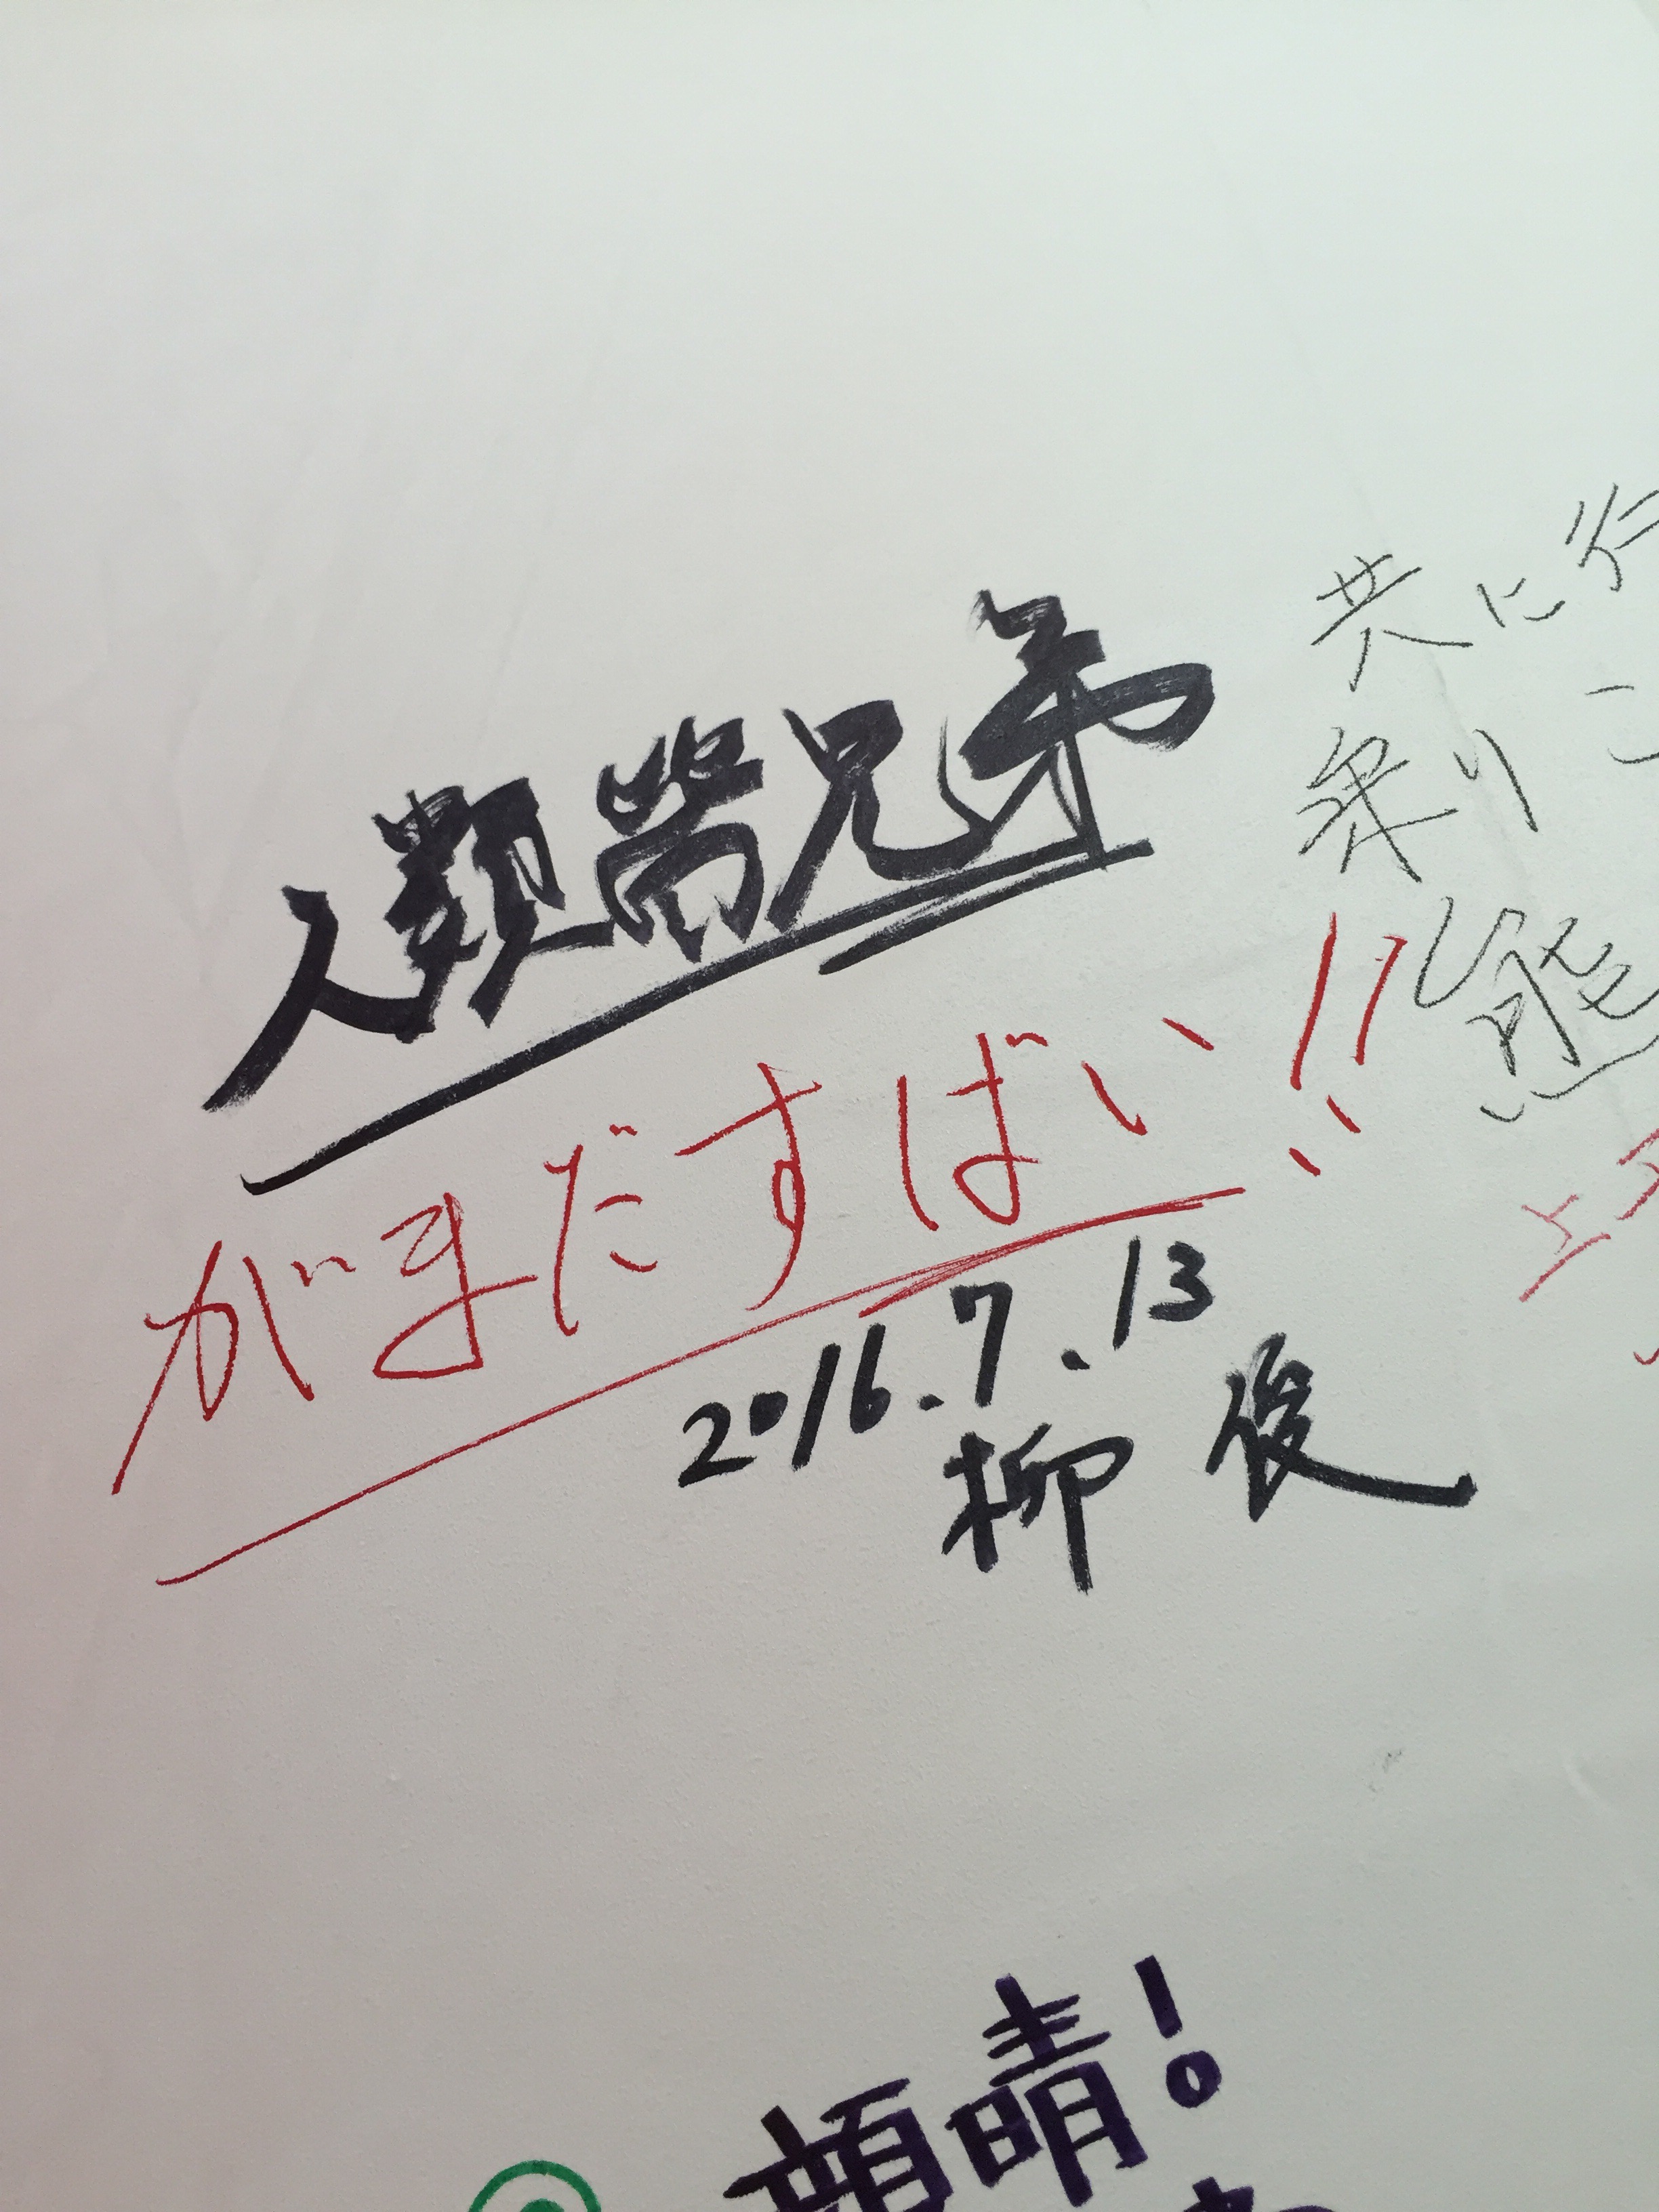 人類皆兄弟
がまだすばい!!
2016.7.13
柳 俊
共に行
乗り
顔晴!